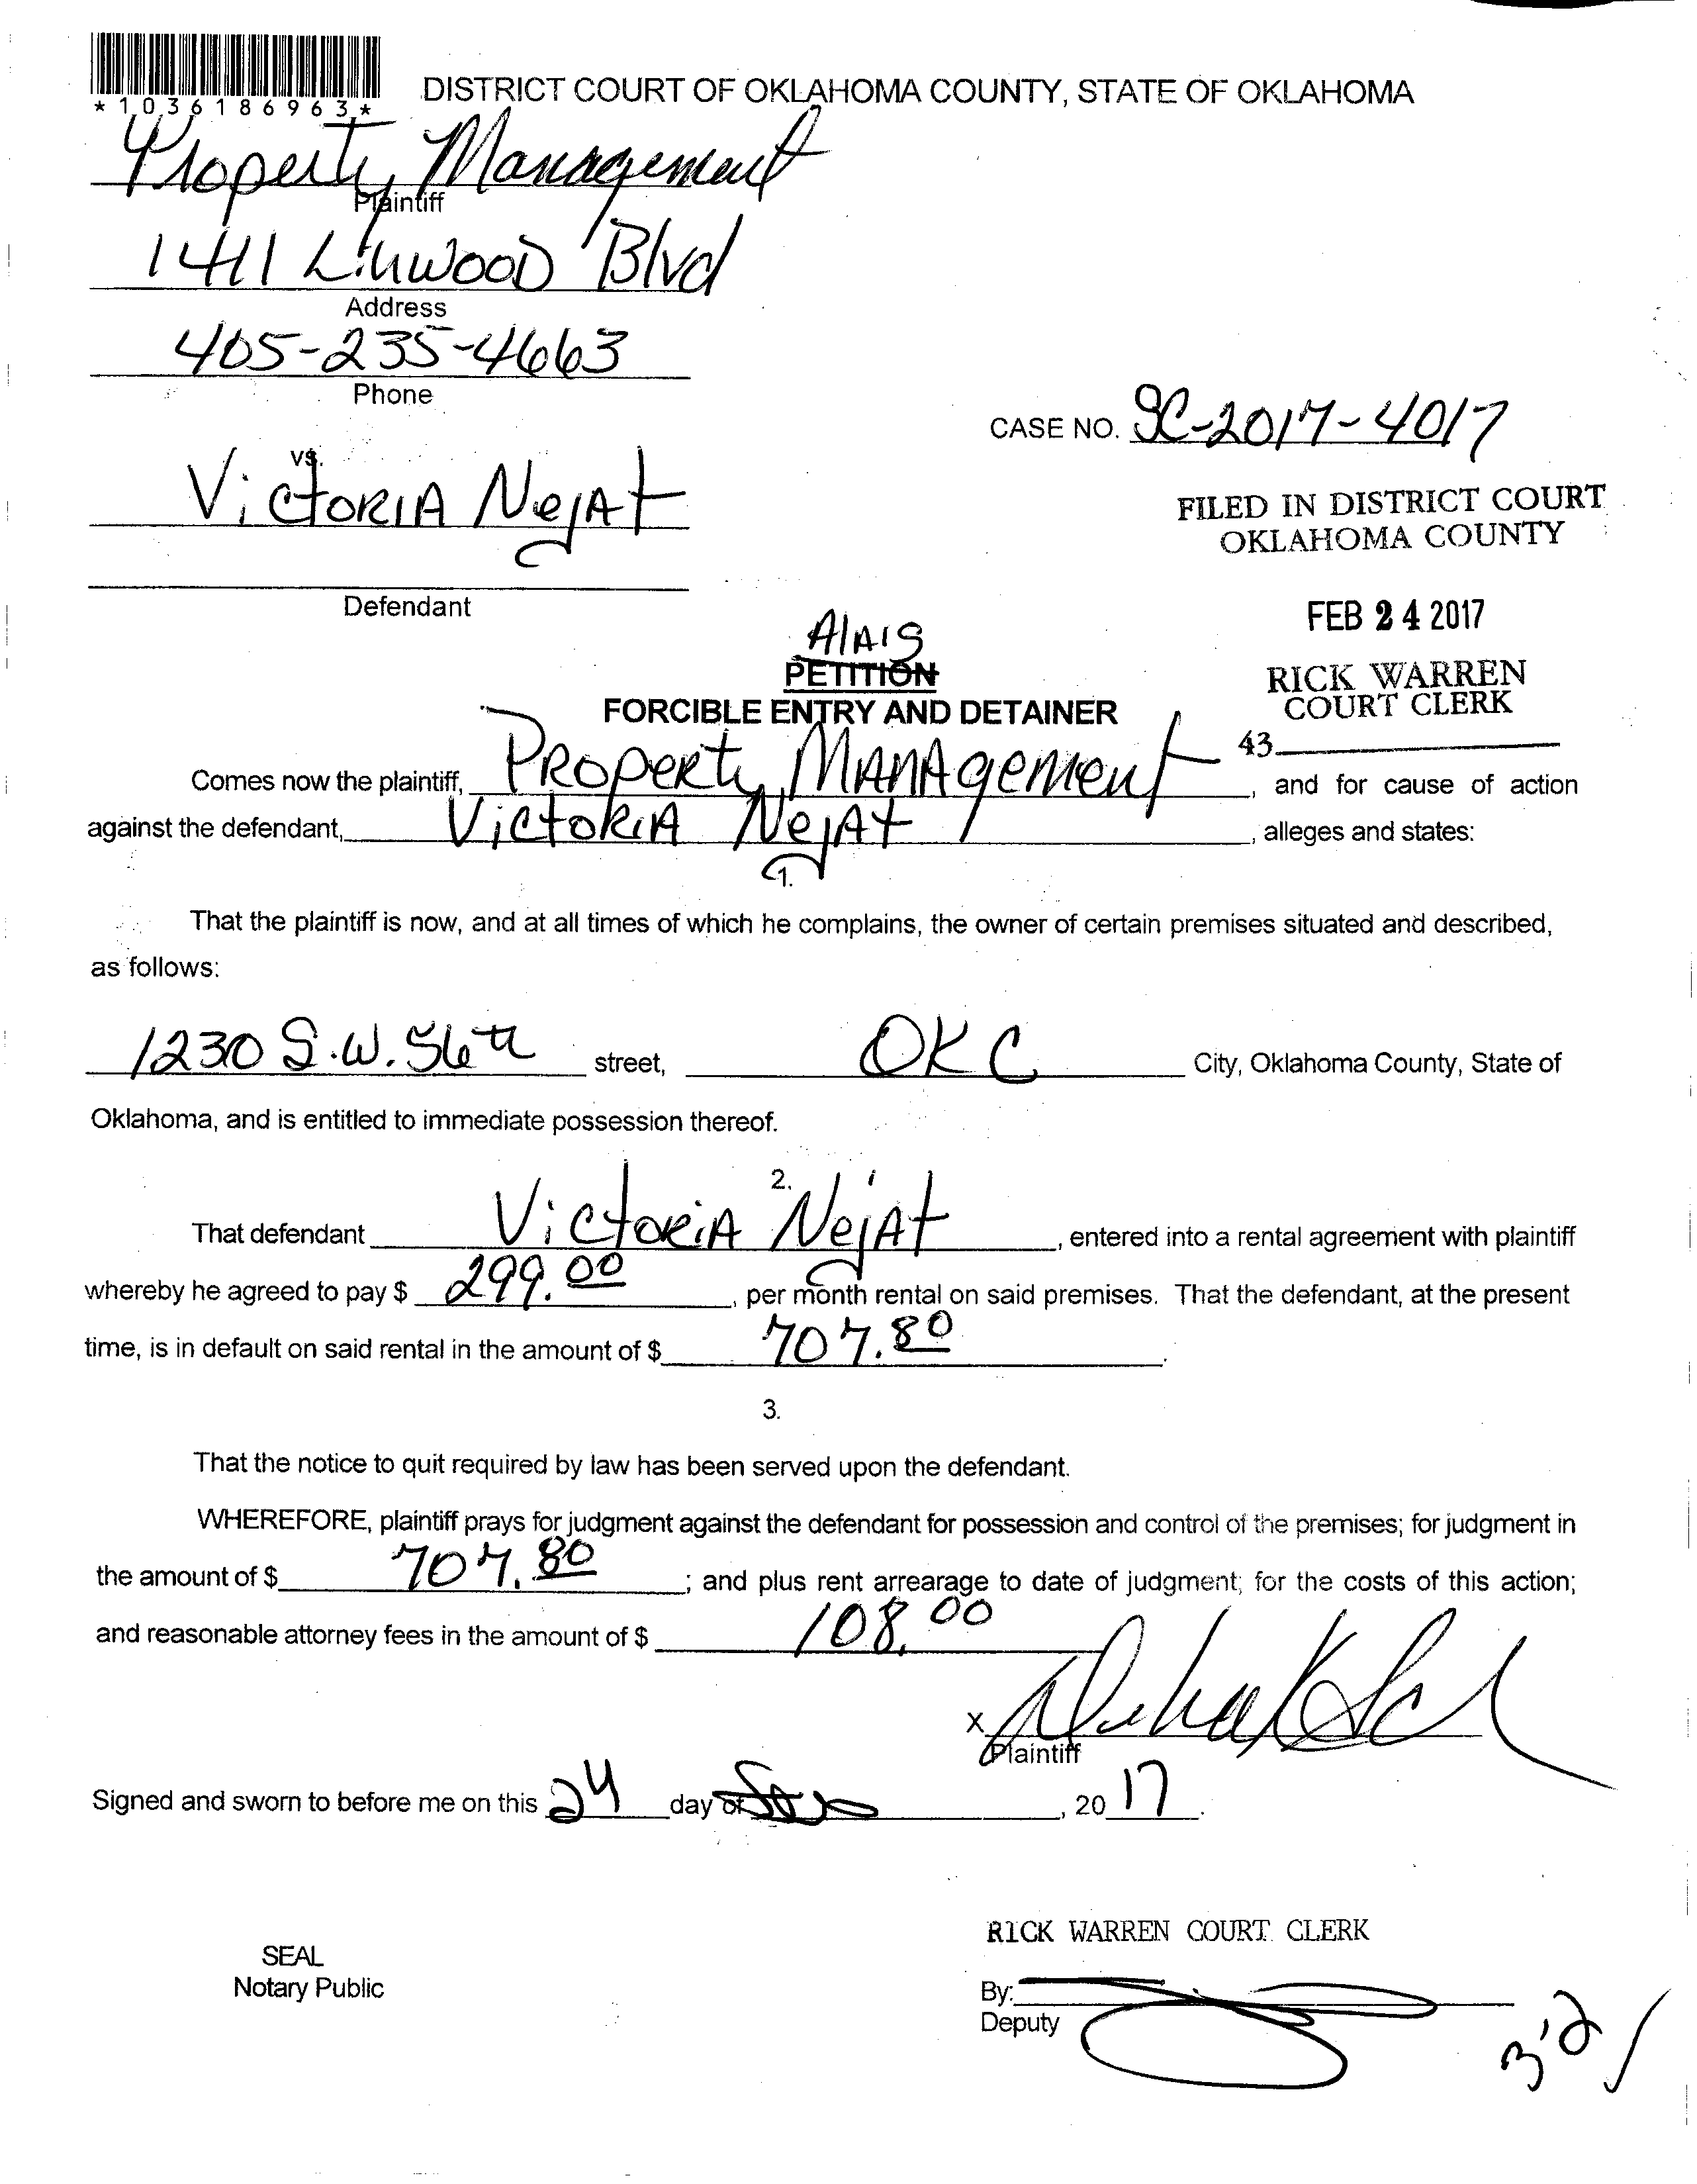 *1036186963*
DISTRICT COURT OF OKLAHOMA COUNTY, STATE OF OKLAHOMA
Property Management
Plaintiff
1411 Linwood Blvd
Address
405-235-4663
Phone
CASE NO. SC-2017-4017
vs.
Victoria Nejat
Defendant
FILED IN DISTRICT COURT
OKLAHOMA COUNTY
FEB 24 2017
RICK WARREN
COURT CLERK
43
Alais
PETITION
FORCIBLE ENTRY AND DETAINER
Comes now the plaintiff, Property Management, and for cause of action
against the defendant, Victoria Nejat, alleges and states:
1.
That the plaintiff is now, and at all times of which he complains, the owner of certain premises situated and described,
as follows:
1230 S.W. 56th street, OKC City, Oklahoma County, State of
Oklahoma, and is entitled to immediate possession thereof.
2.
That defendant Victoria Nejat, entered into a rental agreement with plaintiff
whereby he agreed to pay $ 299.00, per month rental on said premises. That the defendant, at the present
time, is in default on said rental in the amount of $ 707.80.
3.
That the notice to quit required by law has been served upon the defendant.
WHEREFORE, plaintiff prays for judgment against the defendant for possession and control of the premises; for judgment in
the amount of $ 707.80; and plus rent arrearage to date of judgment; for the costs of this action;
and reasonable attorney fees in the amount of $ 108.00
X
Plaintiff
Signed and sworn to before me on this 24 day of , 20 17.
RICK WARREN COURT CLERK
SEAL
Notary Public
By:
Deputy